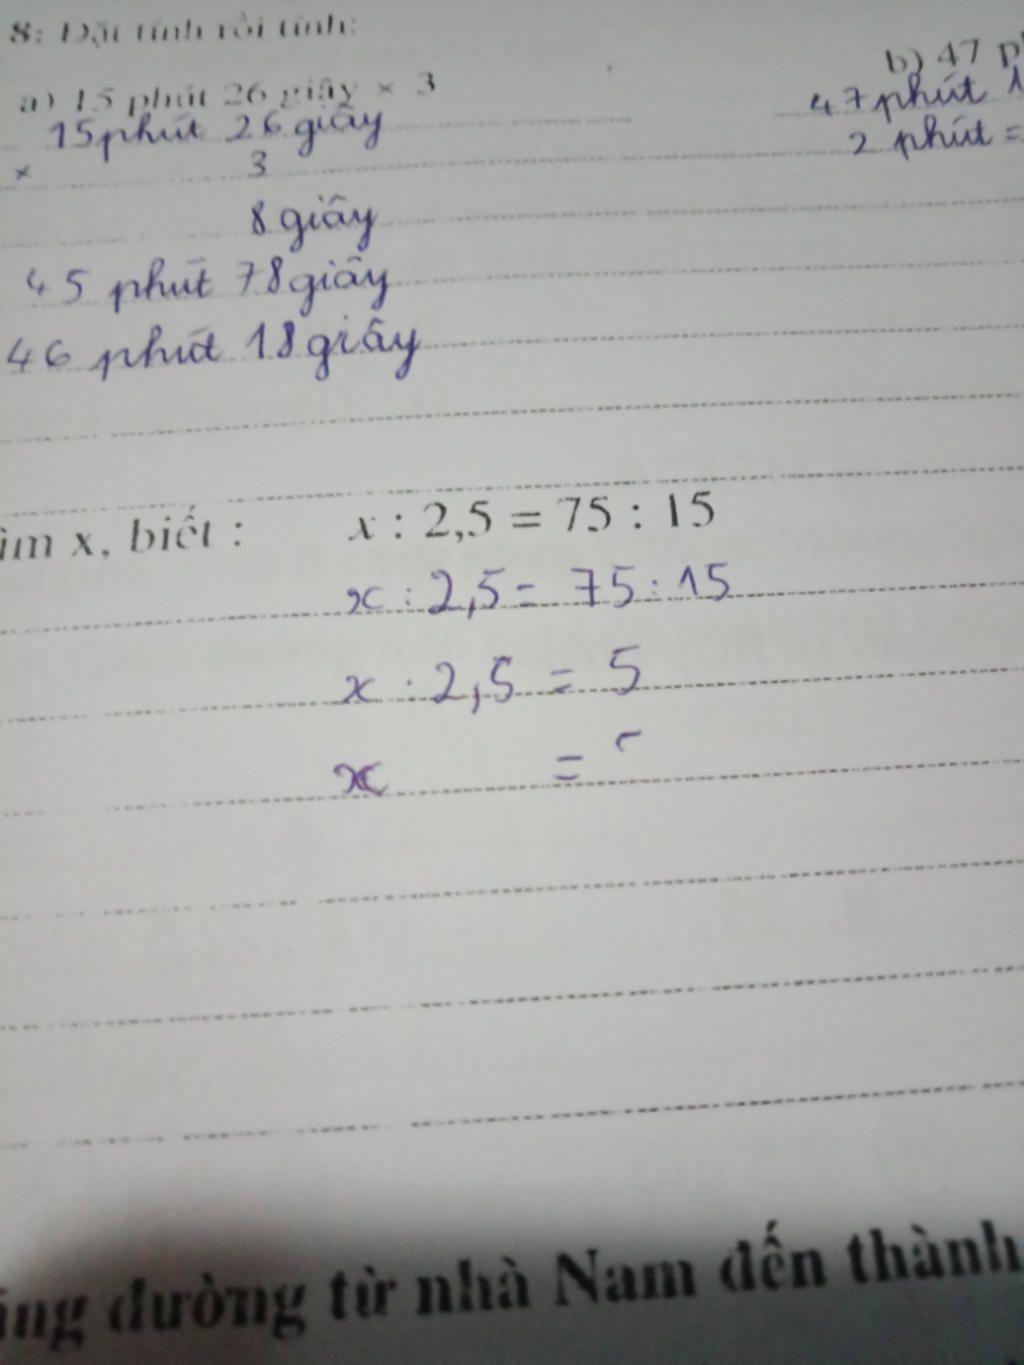 8: Đặt tính rồi tính:
a) 15 phút 26 giây × 3
b) 47
15phút 26giây
47phút 1
× 3
2 phút =
8giây
45 phút 78giây
46 phút 18giây
x, biết : x : 2,5 = 75 : 15
x : 2,5 = 75 : 15
x : 2,5 = 5
x =
đường từ nhà Nam đến thành